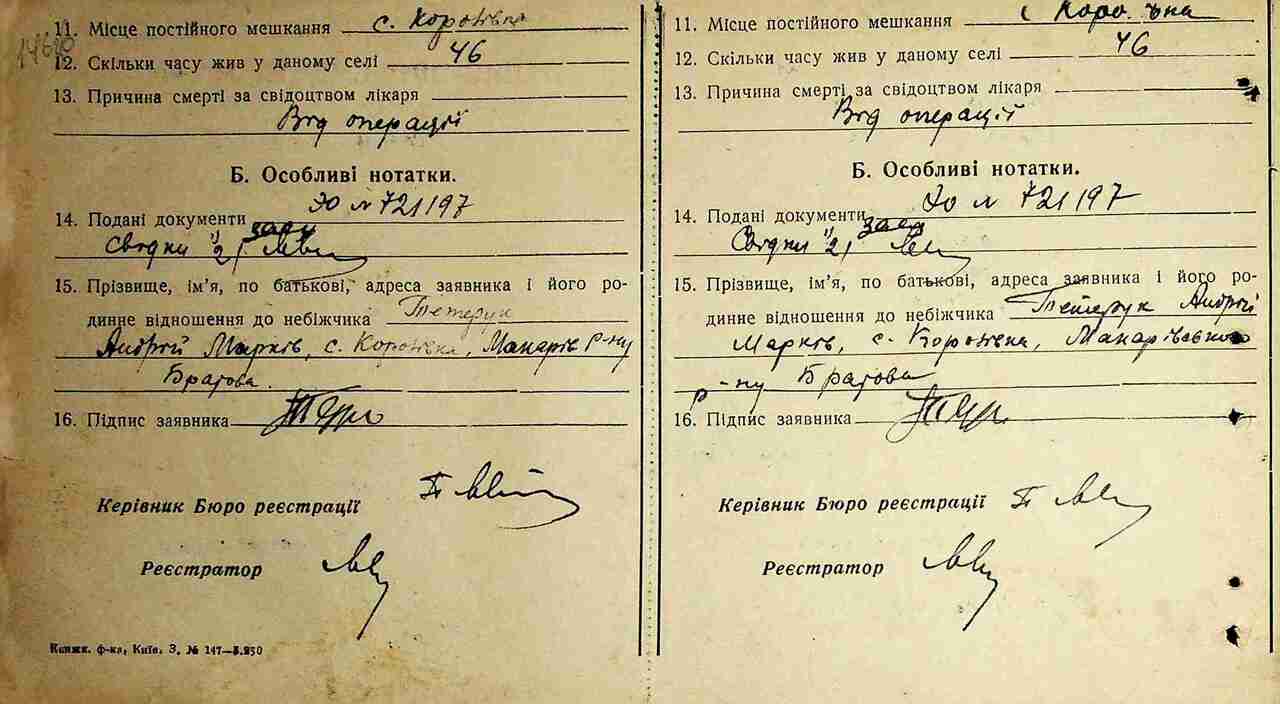 11. Місце постійного мешкання с. Коронівка
12. Скільки часу жив у даному селі 46
13. Причина смерті за свідоцтвом лікаря
Від операції
Б. Особливі нотатки.
14. Подані документи ЭЮ № 721197
15. Прізвище, ім'я, по батькові, адреса заявника і його ро-
динне відношення до небіжчика Тетерук
Андрій Марків, с. Коронівка, Макарів р-ну
Братова.
16. Підпис заявника
Керівник Бюро реєстрації
Реєстратор
Книжк. ф-ка, Київ. З. № 147—5.250
11. Місце постійного мешкання
12. Скільки часу жив у даному селі 46
13. Причина смерті за свідоцтвом лікаря
Від операції
Б. Особливі нотатки.
14. Подані документи № 721197
15. Прізвище, ім'я, по батькові, адреса заявника і його ро-
динне відношення до небіжчика Тетерук Андрій
Марків, с. Коронівка, Макарівського
р-ну Братова
16. Підпис заявника
Керівник Бюро реєстрації
Реєстратор